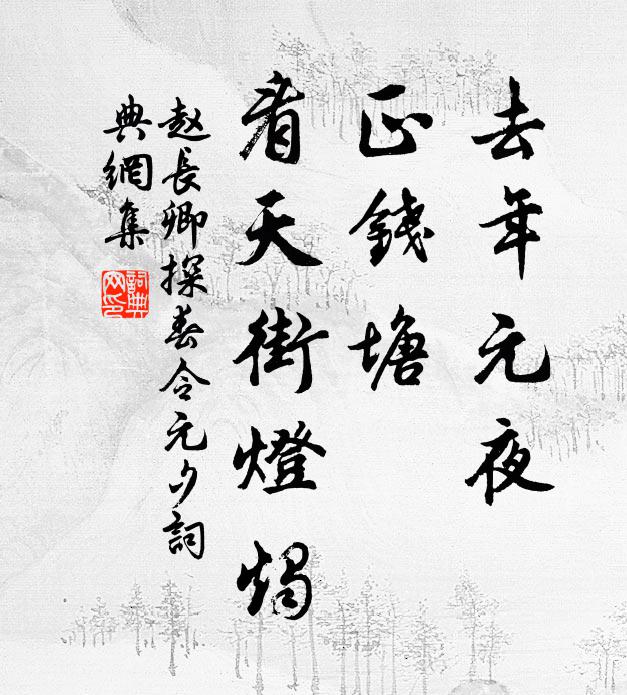 去年元夜
正錢塘
看天街燈燭
赵長卿探春令元夕詞
典網集
詞典
网印